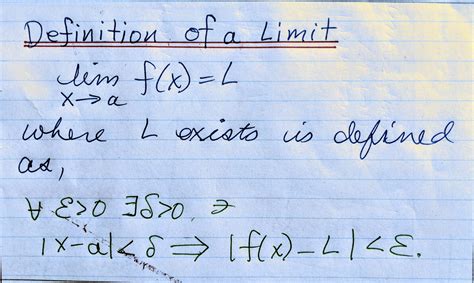 Definition of a Limit
lim f(x) = L
x→a
where L exists is defined
as,
∀ ε>0 ∃δ>0, ∋
|x-a|<δ ⇒ |f(x)-L|<ε.